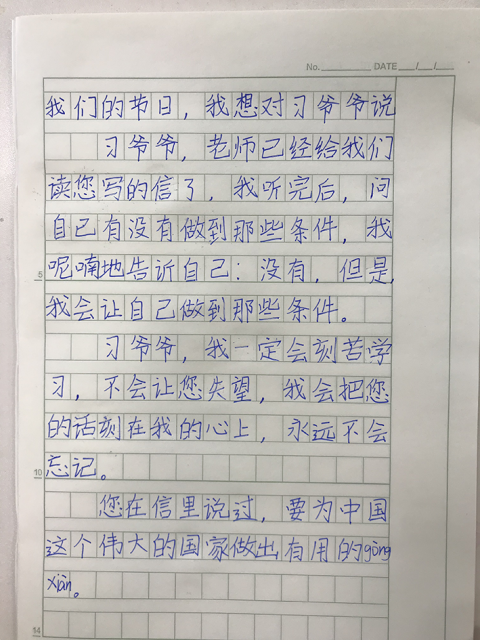 No. DATE / /
我们的节日，我想对习爷爷说
习爷爷，老师已经给我们
读您写的信了，我听完后，问
自己有没有做到那些条件，我
呢喃地告诉自己：没有，但是，
5
我会让自己做到那些条件。
习爷爷，我一定会刻苦学
习，不会让您失望，我会把您
的话刻在我的心上，永远不会
忘记。
10
您在信里说过，要为中国
这个伟大的国家做出有用的gòng
xiàn。
14